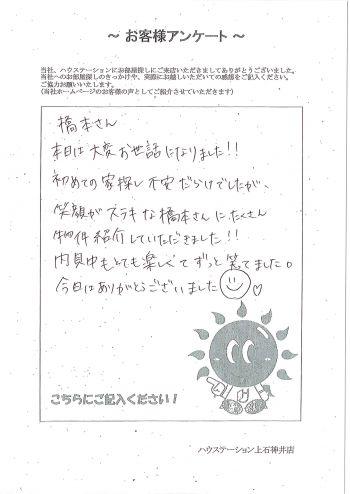 ～ お客様アンケート ～
当社、ハウステーションにお部屋探しにご来店いただきましてありがとうございました。
当社へのお部屋探しのきっかけや、実際にお越しいただいての感想をご記入ください。
ご協力お願いいたします。
(当社ホームページのお客様の声としてご紹介させていただきます)
橋本さん
本日は大変お世話になりました!!
初めての家探し不安だらけでしたが、
笑顔がステキな橋本さんにたくさん
物件紹介していただきました!!
内見中もとても楽しくてずっと笑てました。
今日はありがとうございました
こちらにご記入ください!
ハウステーション上石神井店